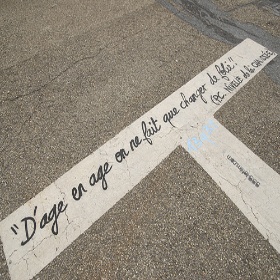 "D'age en age on ne fait que changer de folie"..
(P.C. NIVELLE de la CHAUSSÉE)